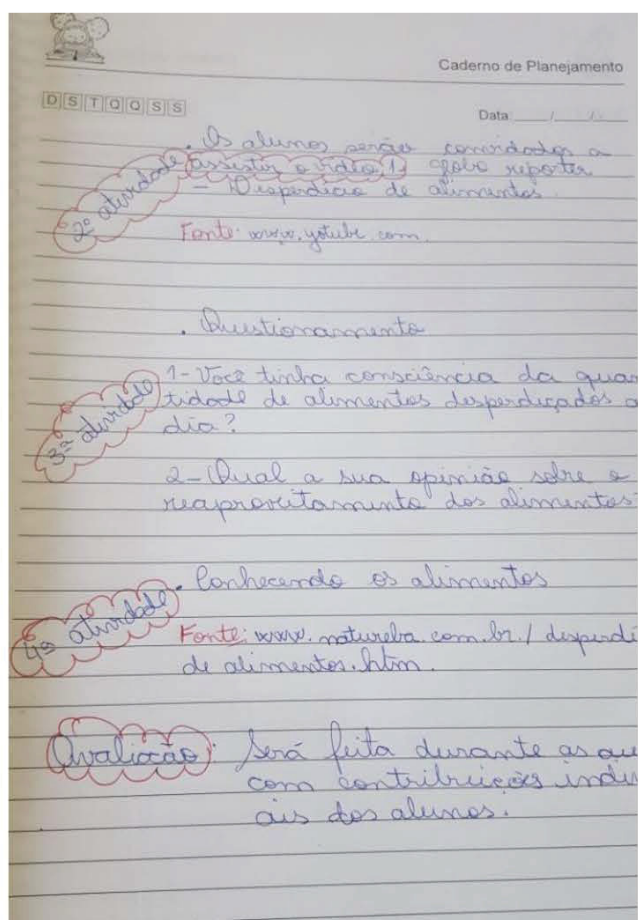 Caderno de Planejamento
D S T Q Q S S
Data ___/___/___
. Os alunos serão convidados a
2ª atividade assistir o vídeo 1, globo reporter
- Desperdício de alimentos.
Fonte: www.yotube.com.
. Questionamento
1- Você tinha consciência da quan
3ª atividade tidade de alimentos desperdiçados a
dia?
2- Qual a sua opinião sobre o
reaproveitamento dos alimentos
. Conhecendo os alimentos
4ª atividade Fonte: www.natureba.com.br/desperdí
de alimentos.htm.
Avaliação: Será feita durante as au
com contribuições indi
ais dos alunos.